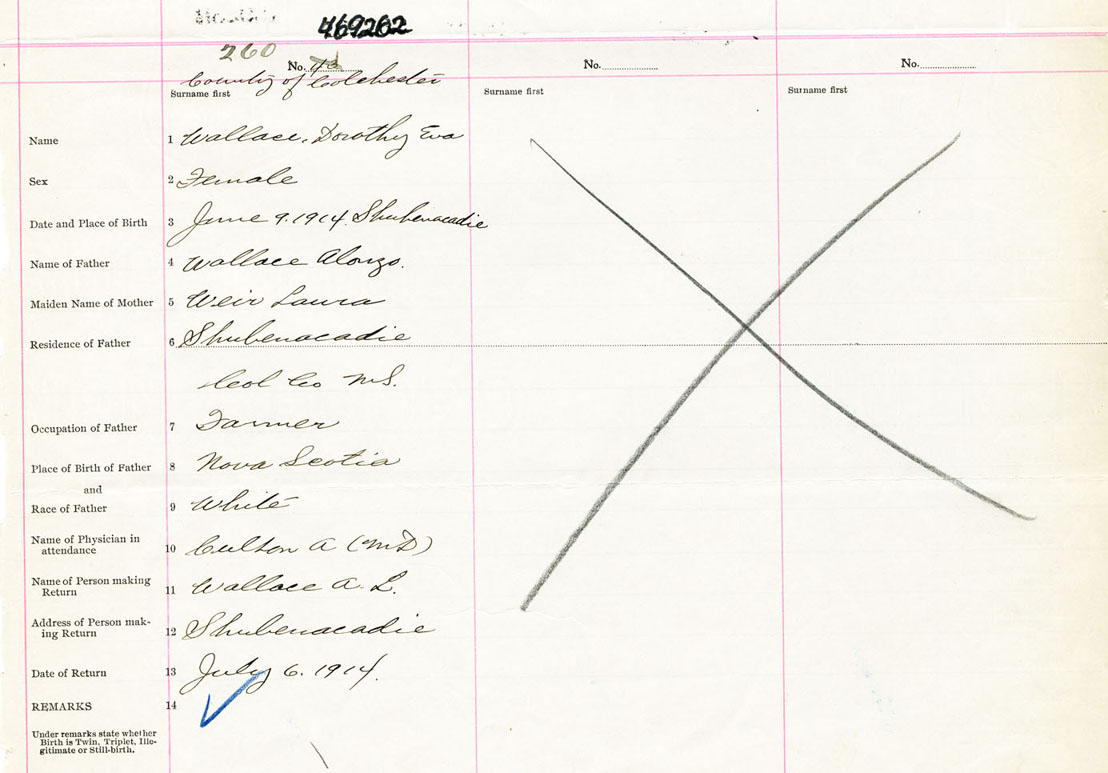 469262
260
No. No. No.
County of Colchester
Surname first Surname first Surname first
Name 1 Wallace, Dorothy Eva
Sex 2 Female
Date and Place of Birth 3 June 9. 1914. Shubenacadie
Name of Father 4 Wallace Alonzo.
Maiden Name of Mother 5 Weir Laura
Residence of Father 6 Shubenacadie
Col Co N.S.
Occupation of Father 7 Farmer
Place of Birth of Father 8 Nova Scotia
and
Race of Father 9 White
Name of Physician in
attendance 10 A (M.D)
Name of Person making
Return 11 Wallace A. L.
Address of Person mak-
ing Return 12 Shubenacadie
Date of Return 13 July 6. 1914.
REMARKS 14
Under remarks state whether
Birth is Twin, Triplet, Ille-
gitimate or Still-birth.